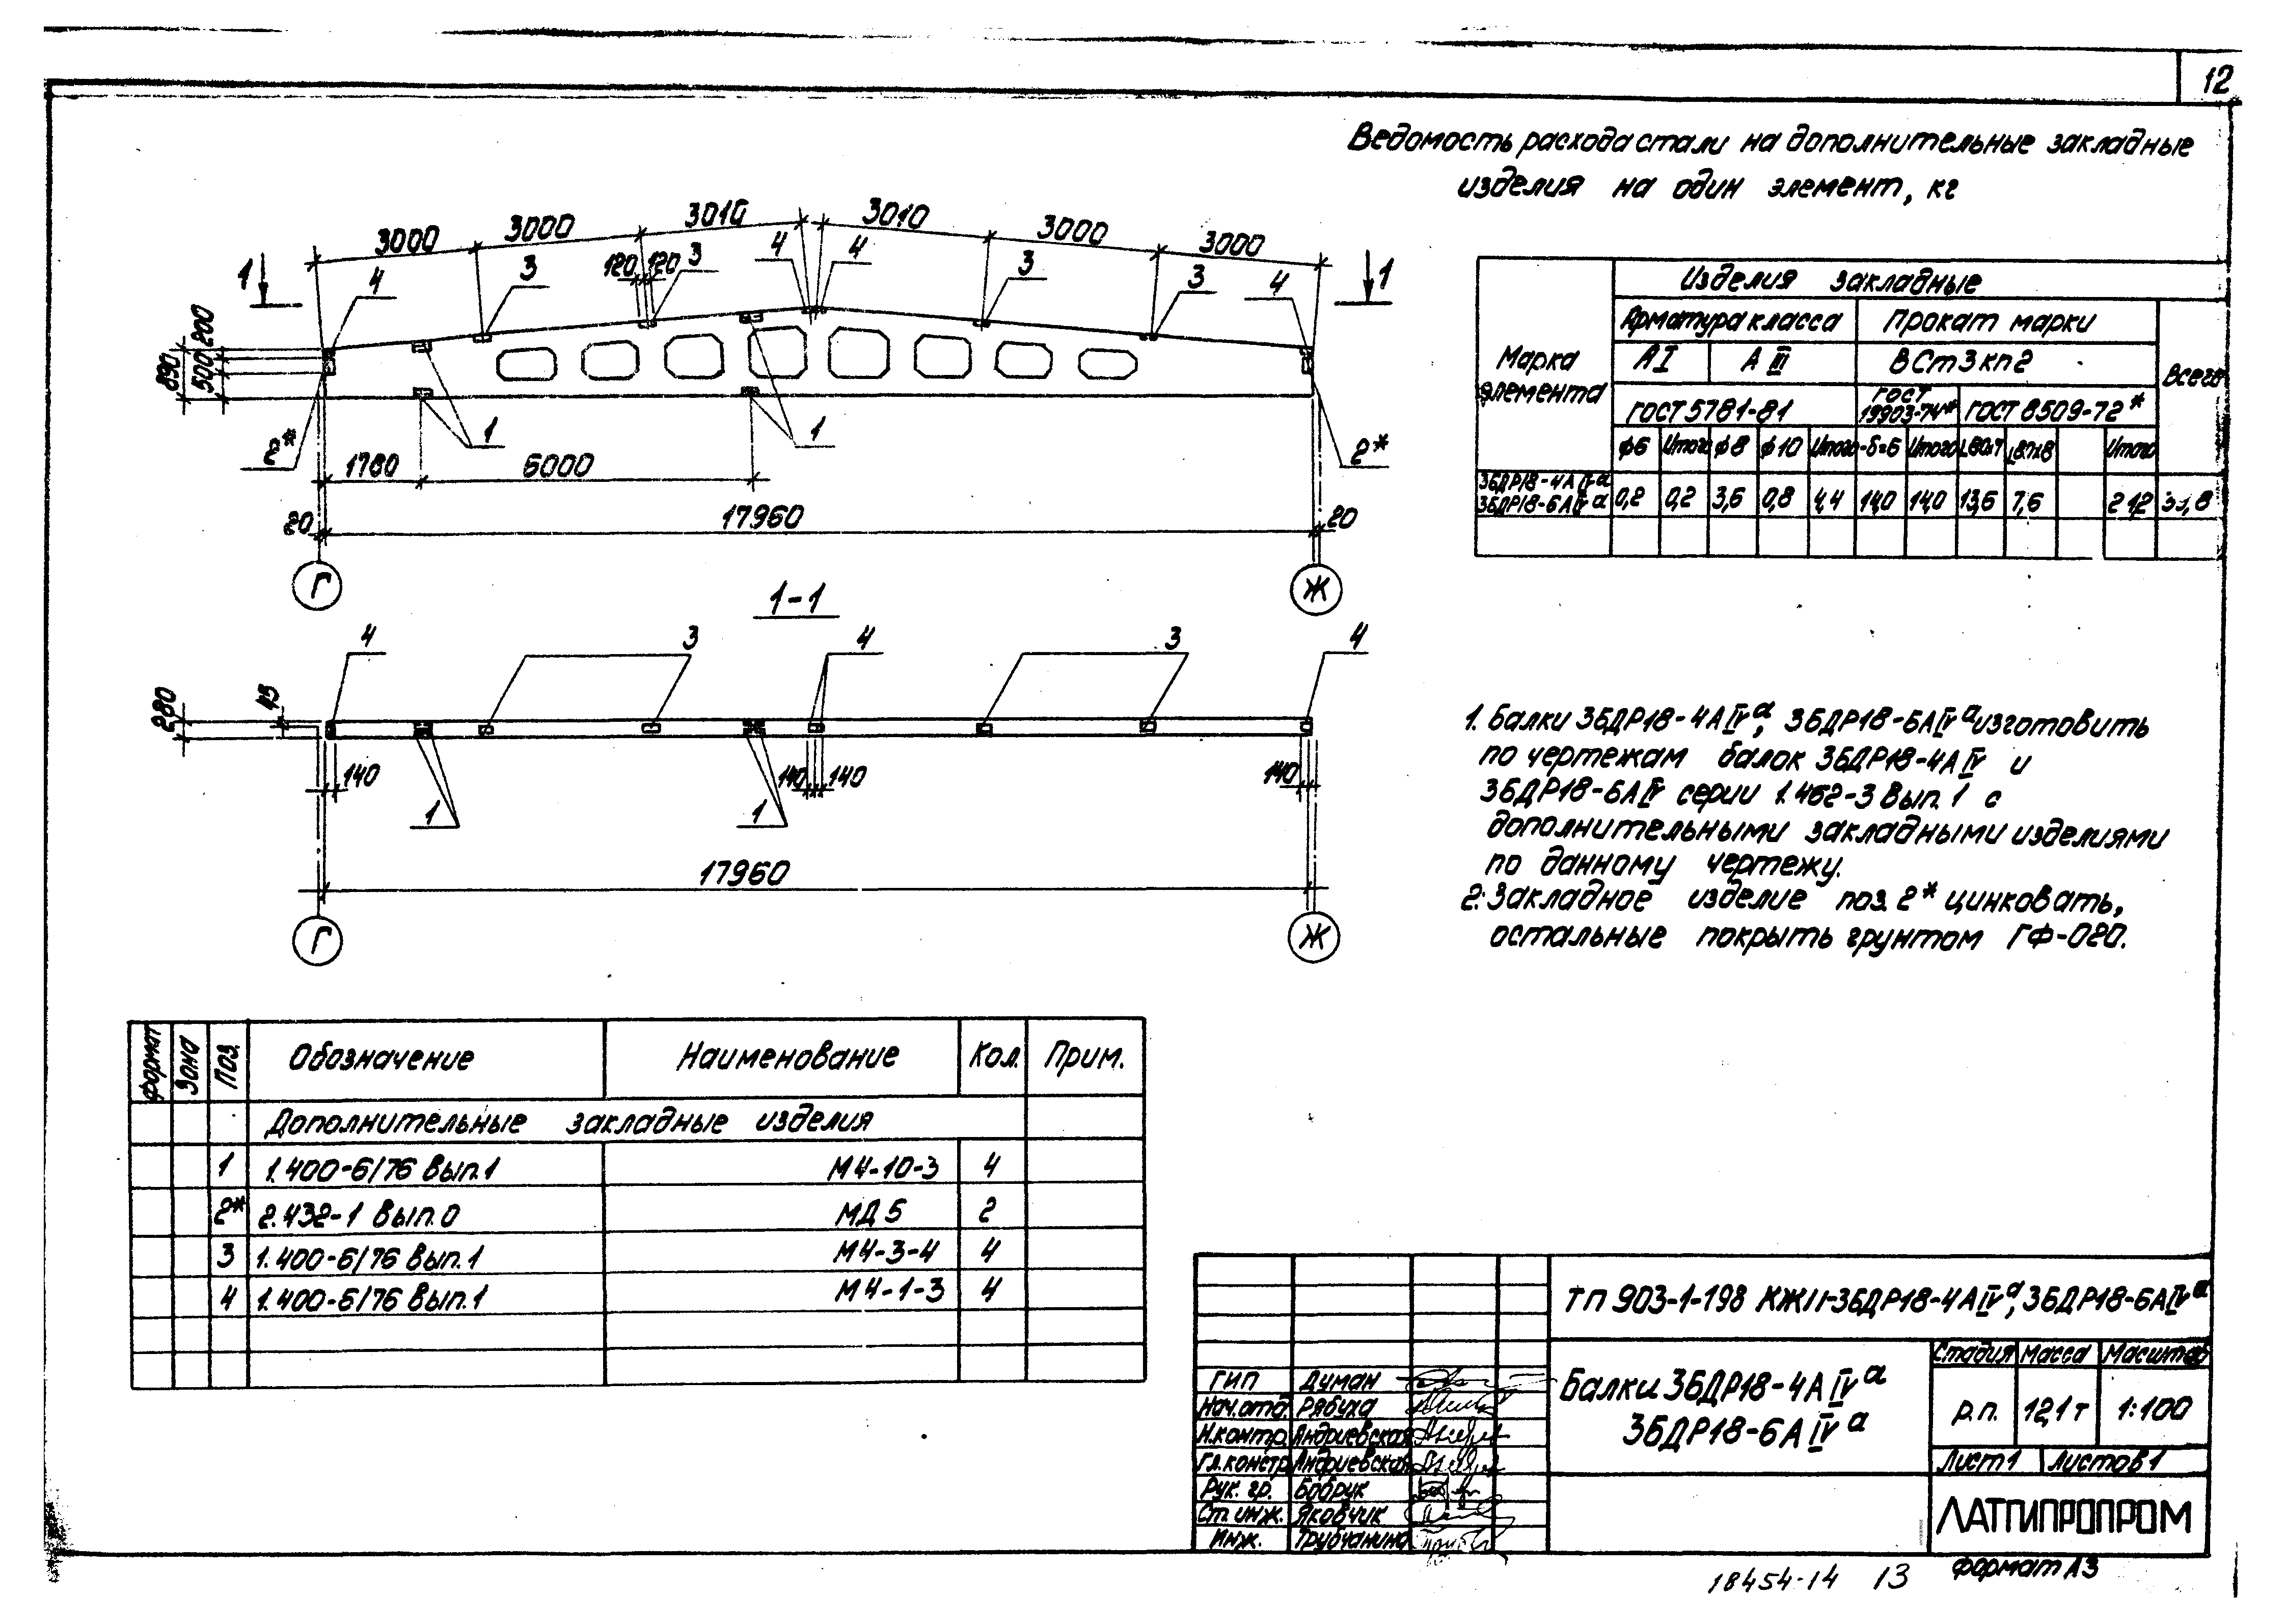 12
Ведомость расхода стали на дополнительные закладные
изделия на один элемент, кг
3000 3000 3010 3010 3000 3000
1 4 3 120 120 3 4 4 3 3 4 1
200
890 500
2* 1 1 2*
1780 6000
20 17960 20
Г Ж
Марка элемента
Изделия закладные
Арматура класса Прокат марки Всего
АI АIII ВСт3кп2
ГОСТ 5781-81 ГОСТ 19903-74* ГОСТ 8509-72*
ф6 Итого ф8 ф10 Итого -δ=6 Итого L80х7 Итого
3БДР18-4АIVа
3БДР18-6АIVа 0,2 0,2 3,6 0,8 4,4 14,0 14,0 13,6 7,6 21,2
1-1
4 3 4 3 4
280 45
140 1 1 140 140 140
17960
Г Ж
1. Балки 3БДР18-4АIVа, 3БДР18-6АIVа изготовить
по чертежам балок 3БДР18-4АIV и
3БДР18-6АIV серии 1.462-3 Вып. 1 с
дополнительными закладными изделиями
по данному чертежу.
2. Закладное изделие поз. 2* цинковать,
остальные покрыть грунтом ГФ-020.
формат Зона Поз. Обозначение Наименование Кол. Прим.
Дополнительные закладные изделия
1 1.400-6/76 Вып.1 М4-10-3 4
2* 2.432-1 Вып.0 МД5 2
3 1.400-6/76 Вып.1 М4-3-4 4
4 1.400-6/76 Вып.1 М4-1-3 4
ТП 903-1-198 КЖII-3БДР18-4АIVа, 3БДР18-6АIVа
Балки 3БДР18-4АIVа
3БДР18-6АIVа
Стадия Масса Масштаб
р.п. 12,1т 1:100
Лист 1 Листов 1
ГИП Думан
Нач.отд. Рябуха
Н.контр. Андриевская
Гл.констр. Андриевская
Рук. гр. Бобрук
Ст. инж. Яковчик
Инж. Трубчанина
ЛАТГИПРОПРОМ
18454-14 13 формат А3